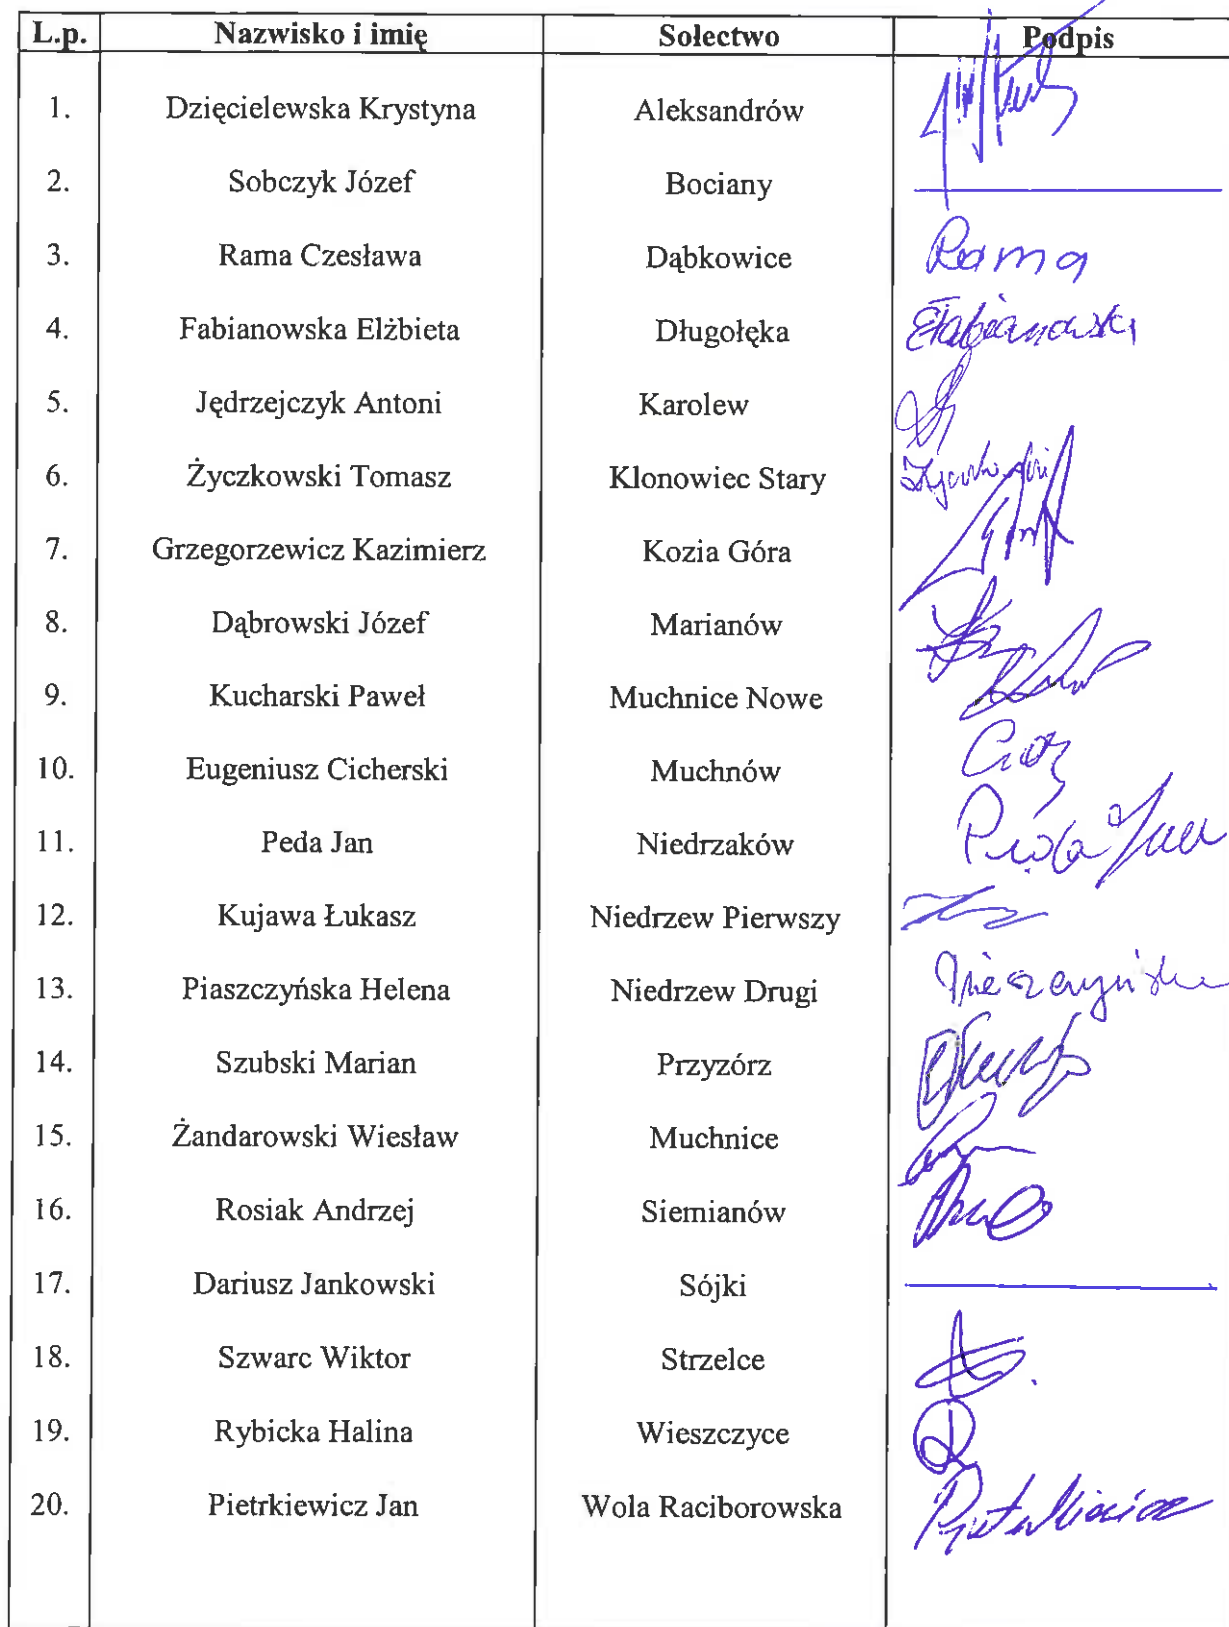 L.p. Nazwisko i imię Sołectwo Podpis
1. Dzięcielewska Krystyna Aleksandrów
2. Sobczyk Józef Bociany
3. Rama Czesława Dąbkowice Rama
4. Fabianowska Elżbieta Długołęka EFabianowska
5. Jędrzejczyk Antoni Karolew
6. Życzkowski Tomasz Klonowiec Stary
7. Grzegorzewicz Kazimierz Kozia Góra
8. Dąbrowski Józef Marianów
9. Kucharski Paweł Muchnice Nowe
10. Eugeniusz Cicherski Muchnów
11. Peda Jan Niedrzaków
12. Kujawa Łukasz Niedrzew Pierwszy
13. Piaszczyńska Helena Niedrzew Drugi
14. Szubski Marian Przyzórz
15. Żandarowski Wiesław Muchnice
16. Rosiak Andrzej Siemianów
17. Dariusz Jankowski Sójki
18. Szwarc Wiktor Strzelce
19. Rybicka Halina Wieszczyce
20. Pietrkiewicz Jan Wola Raciborowska